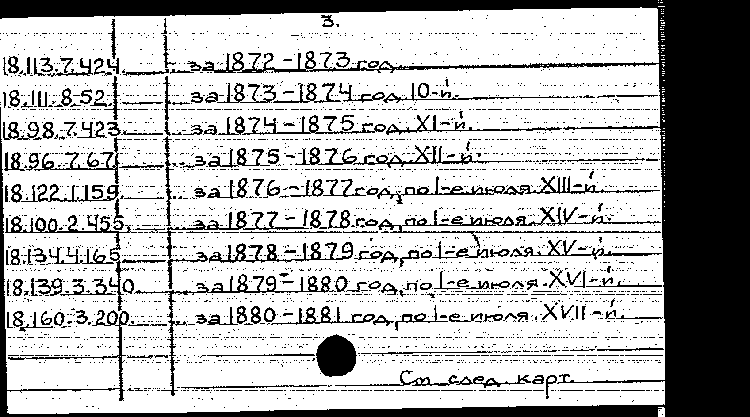 3.
18.113.7.424. ... за 1872-1873 год.
18.111.8.52. ... за 1873-1874 год, 10-й.
18.98.7.423. ... за 1874-1875 год, XI-й.
18.96.7.67. ... за 1875-1876 год. XII-й.
18.122.1.159. ... за 1876-1877 год, по 1-е июля. XIII-й.
18.100.2.455. ... за 1877-1878 год, по 1-е июля. XIV-й.
18.134.4.165. ... за 1878-1879 год, по 1-е июля. XV-й.
18.139.3.340. ... за 1879-1880 год, по 1-е июля. XVI-й.
18.160.3.200. ... за 1880-1881 год, по 1-е июля. XVII-й.
См. след. карт.